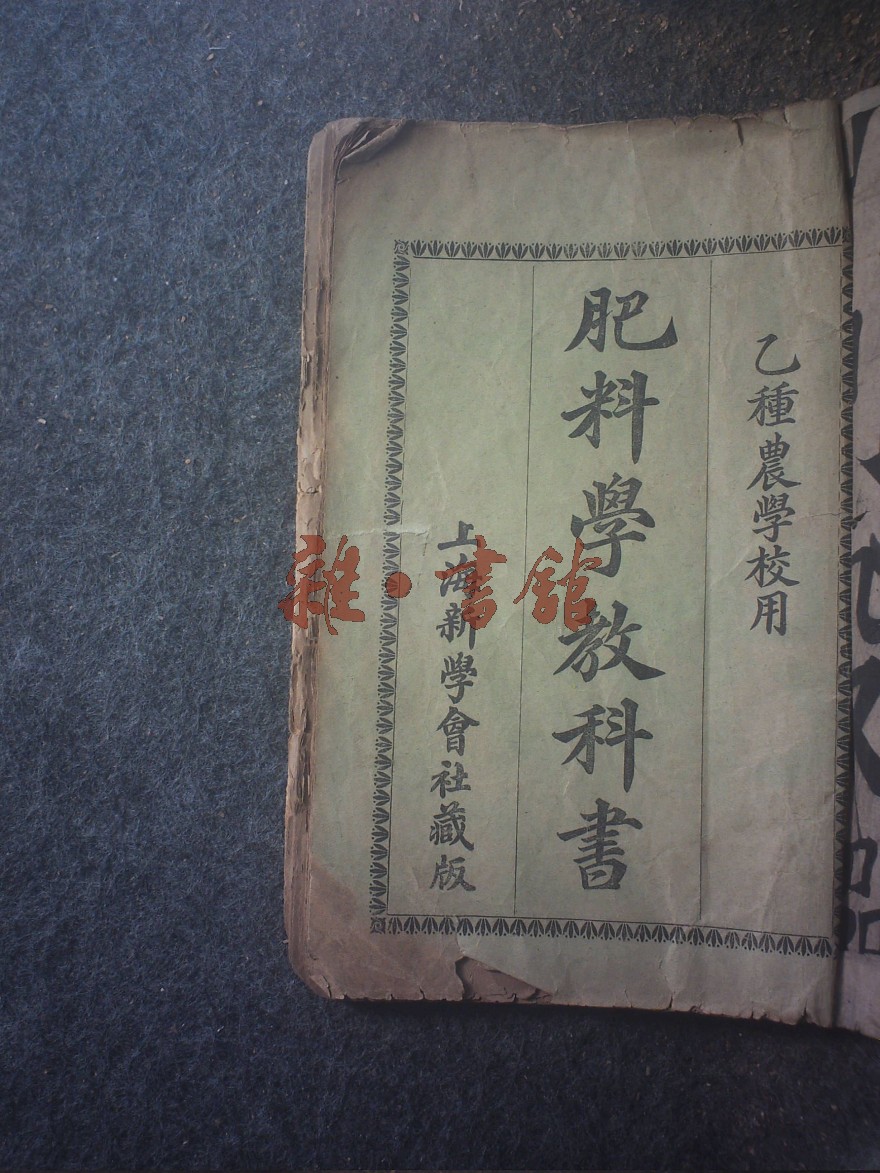 乙種農學校用
肥料學教科書
上海新學會社藏版
雜·書館